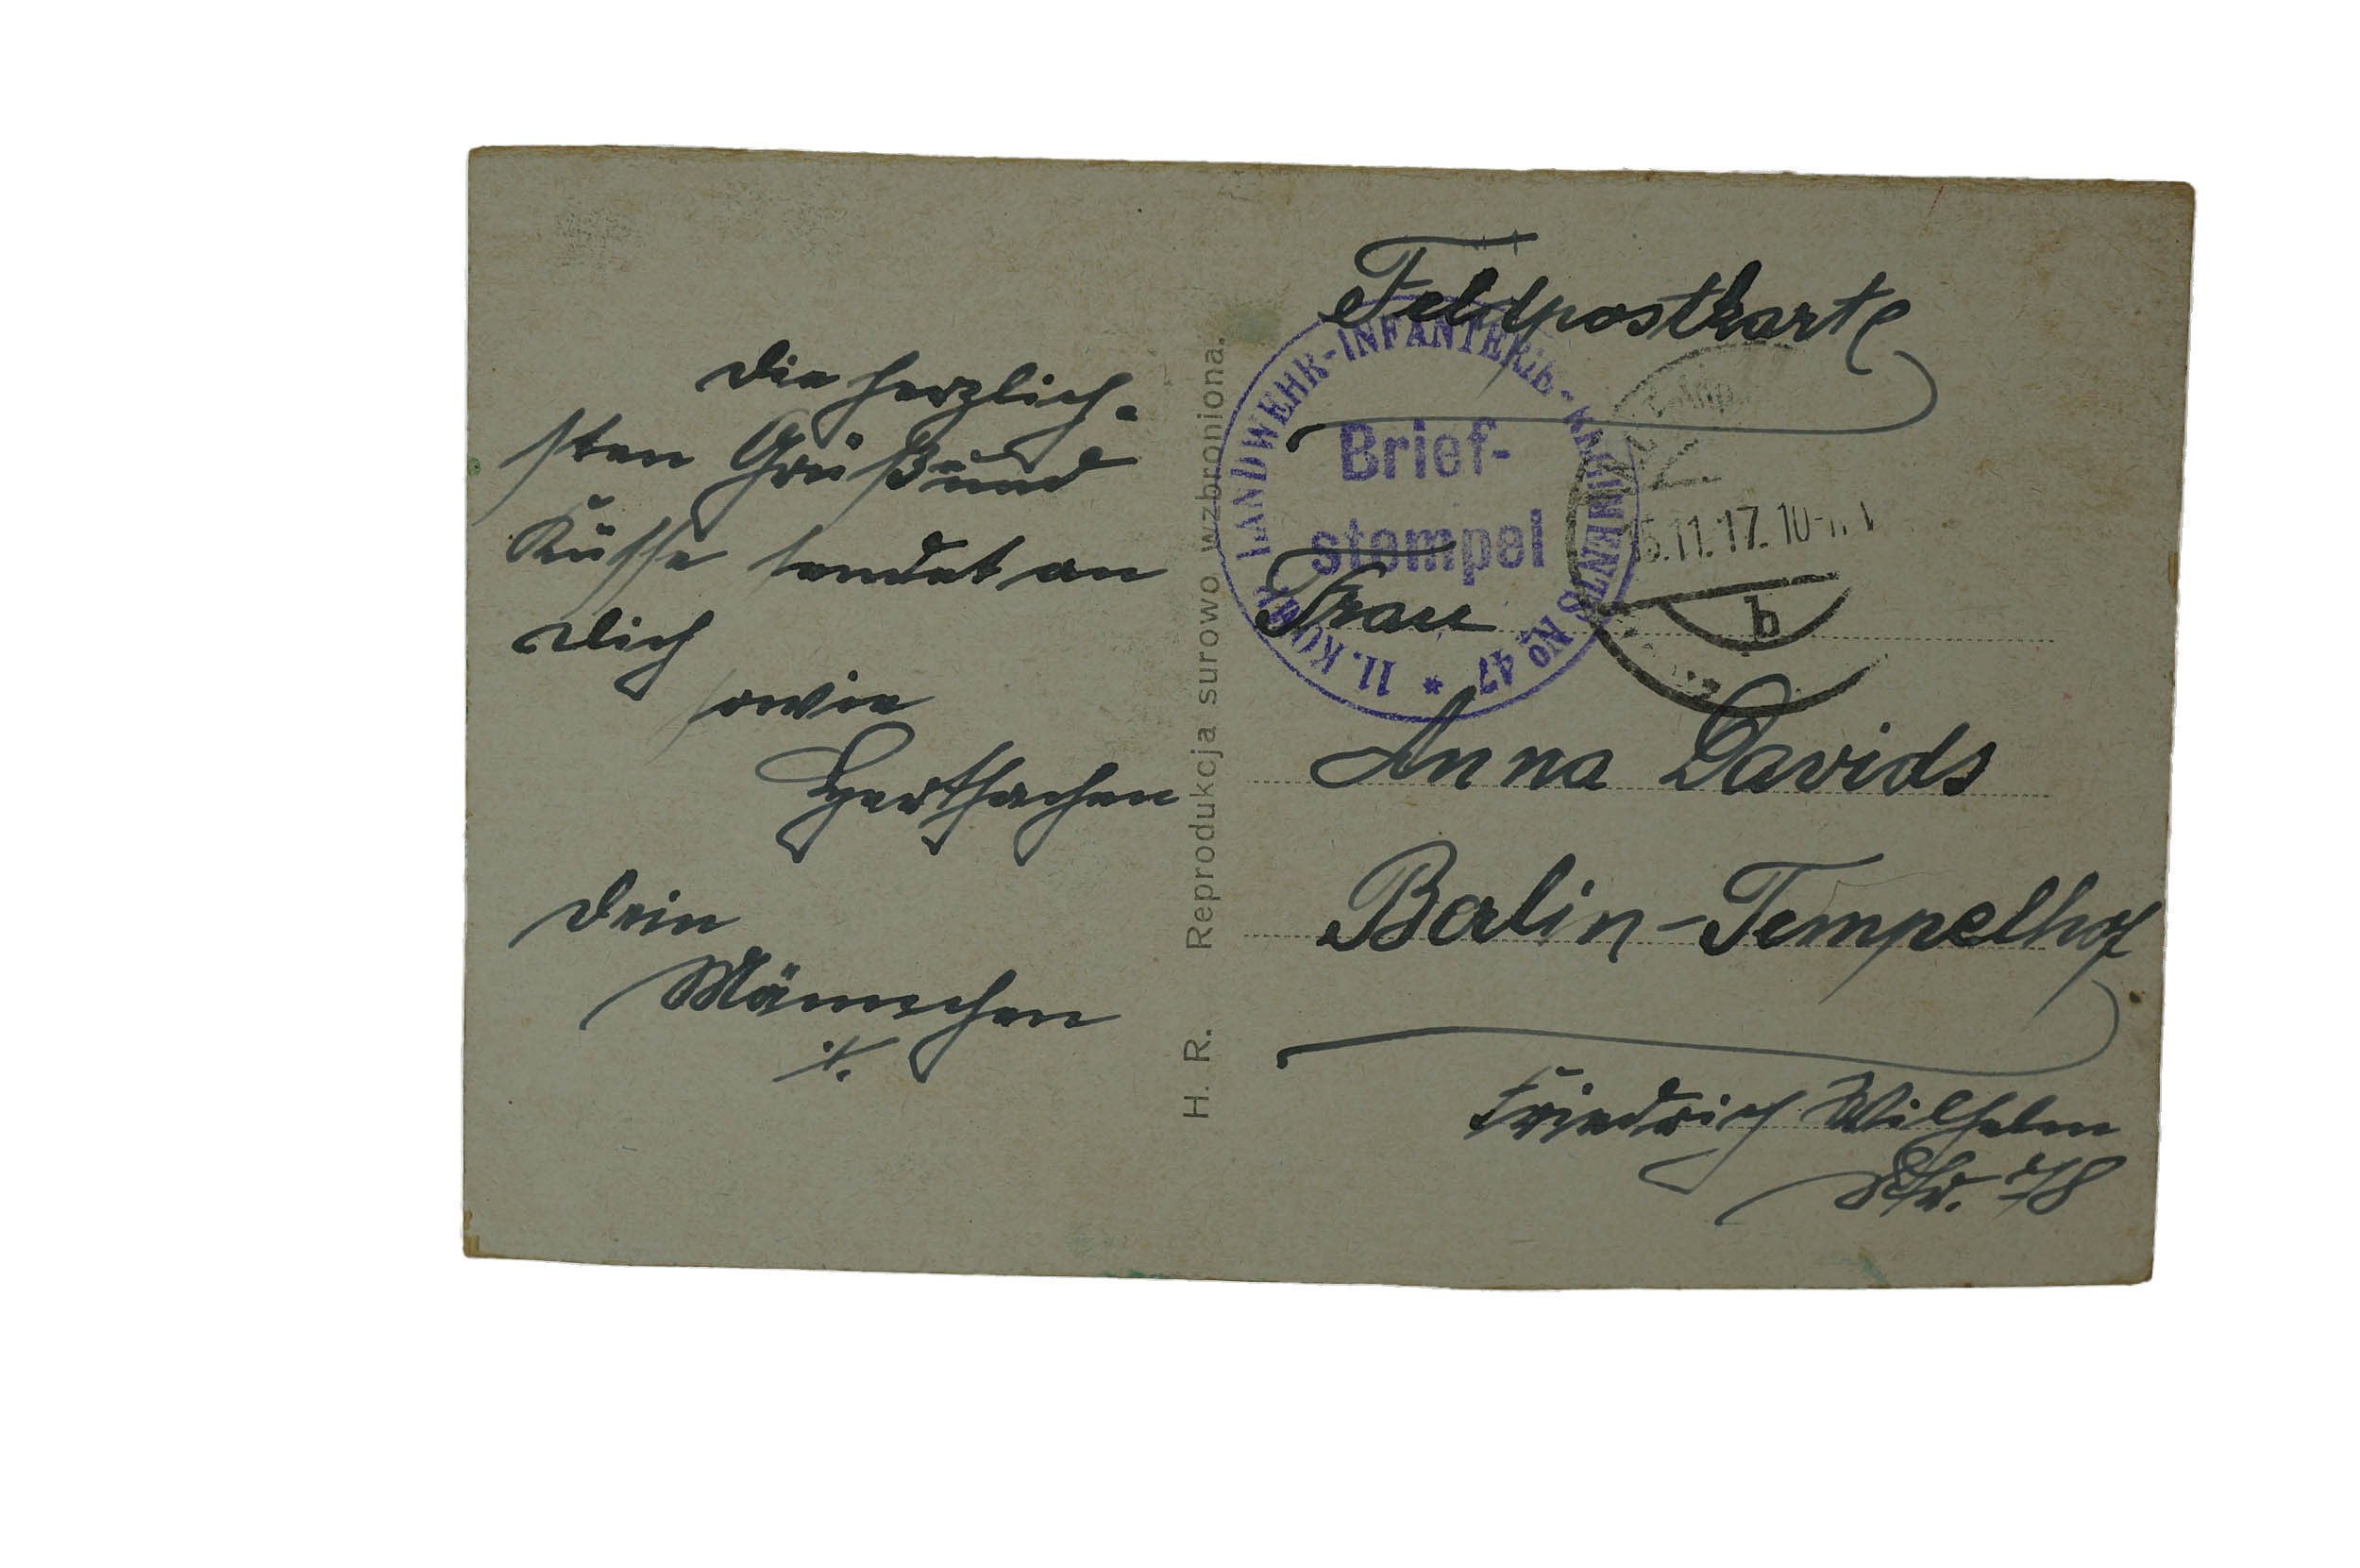 Die herzlich-
sten Grüß und
Küsse sendet an
Dich
sowie
Herthachen
Dein
Männchen
H. R. Reprodukcja surowo wzbroniona.
Feldpostkarte
11. KOMP. LANDWEHR-INFANTERIE-REGIMENTS No 47 *
Brief-
stempel
5.11.17. 10-11 V
b
Frau
Anna Davids
Berlin-Tempelhof
Friedrich Wilhelm
Str.